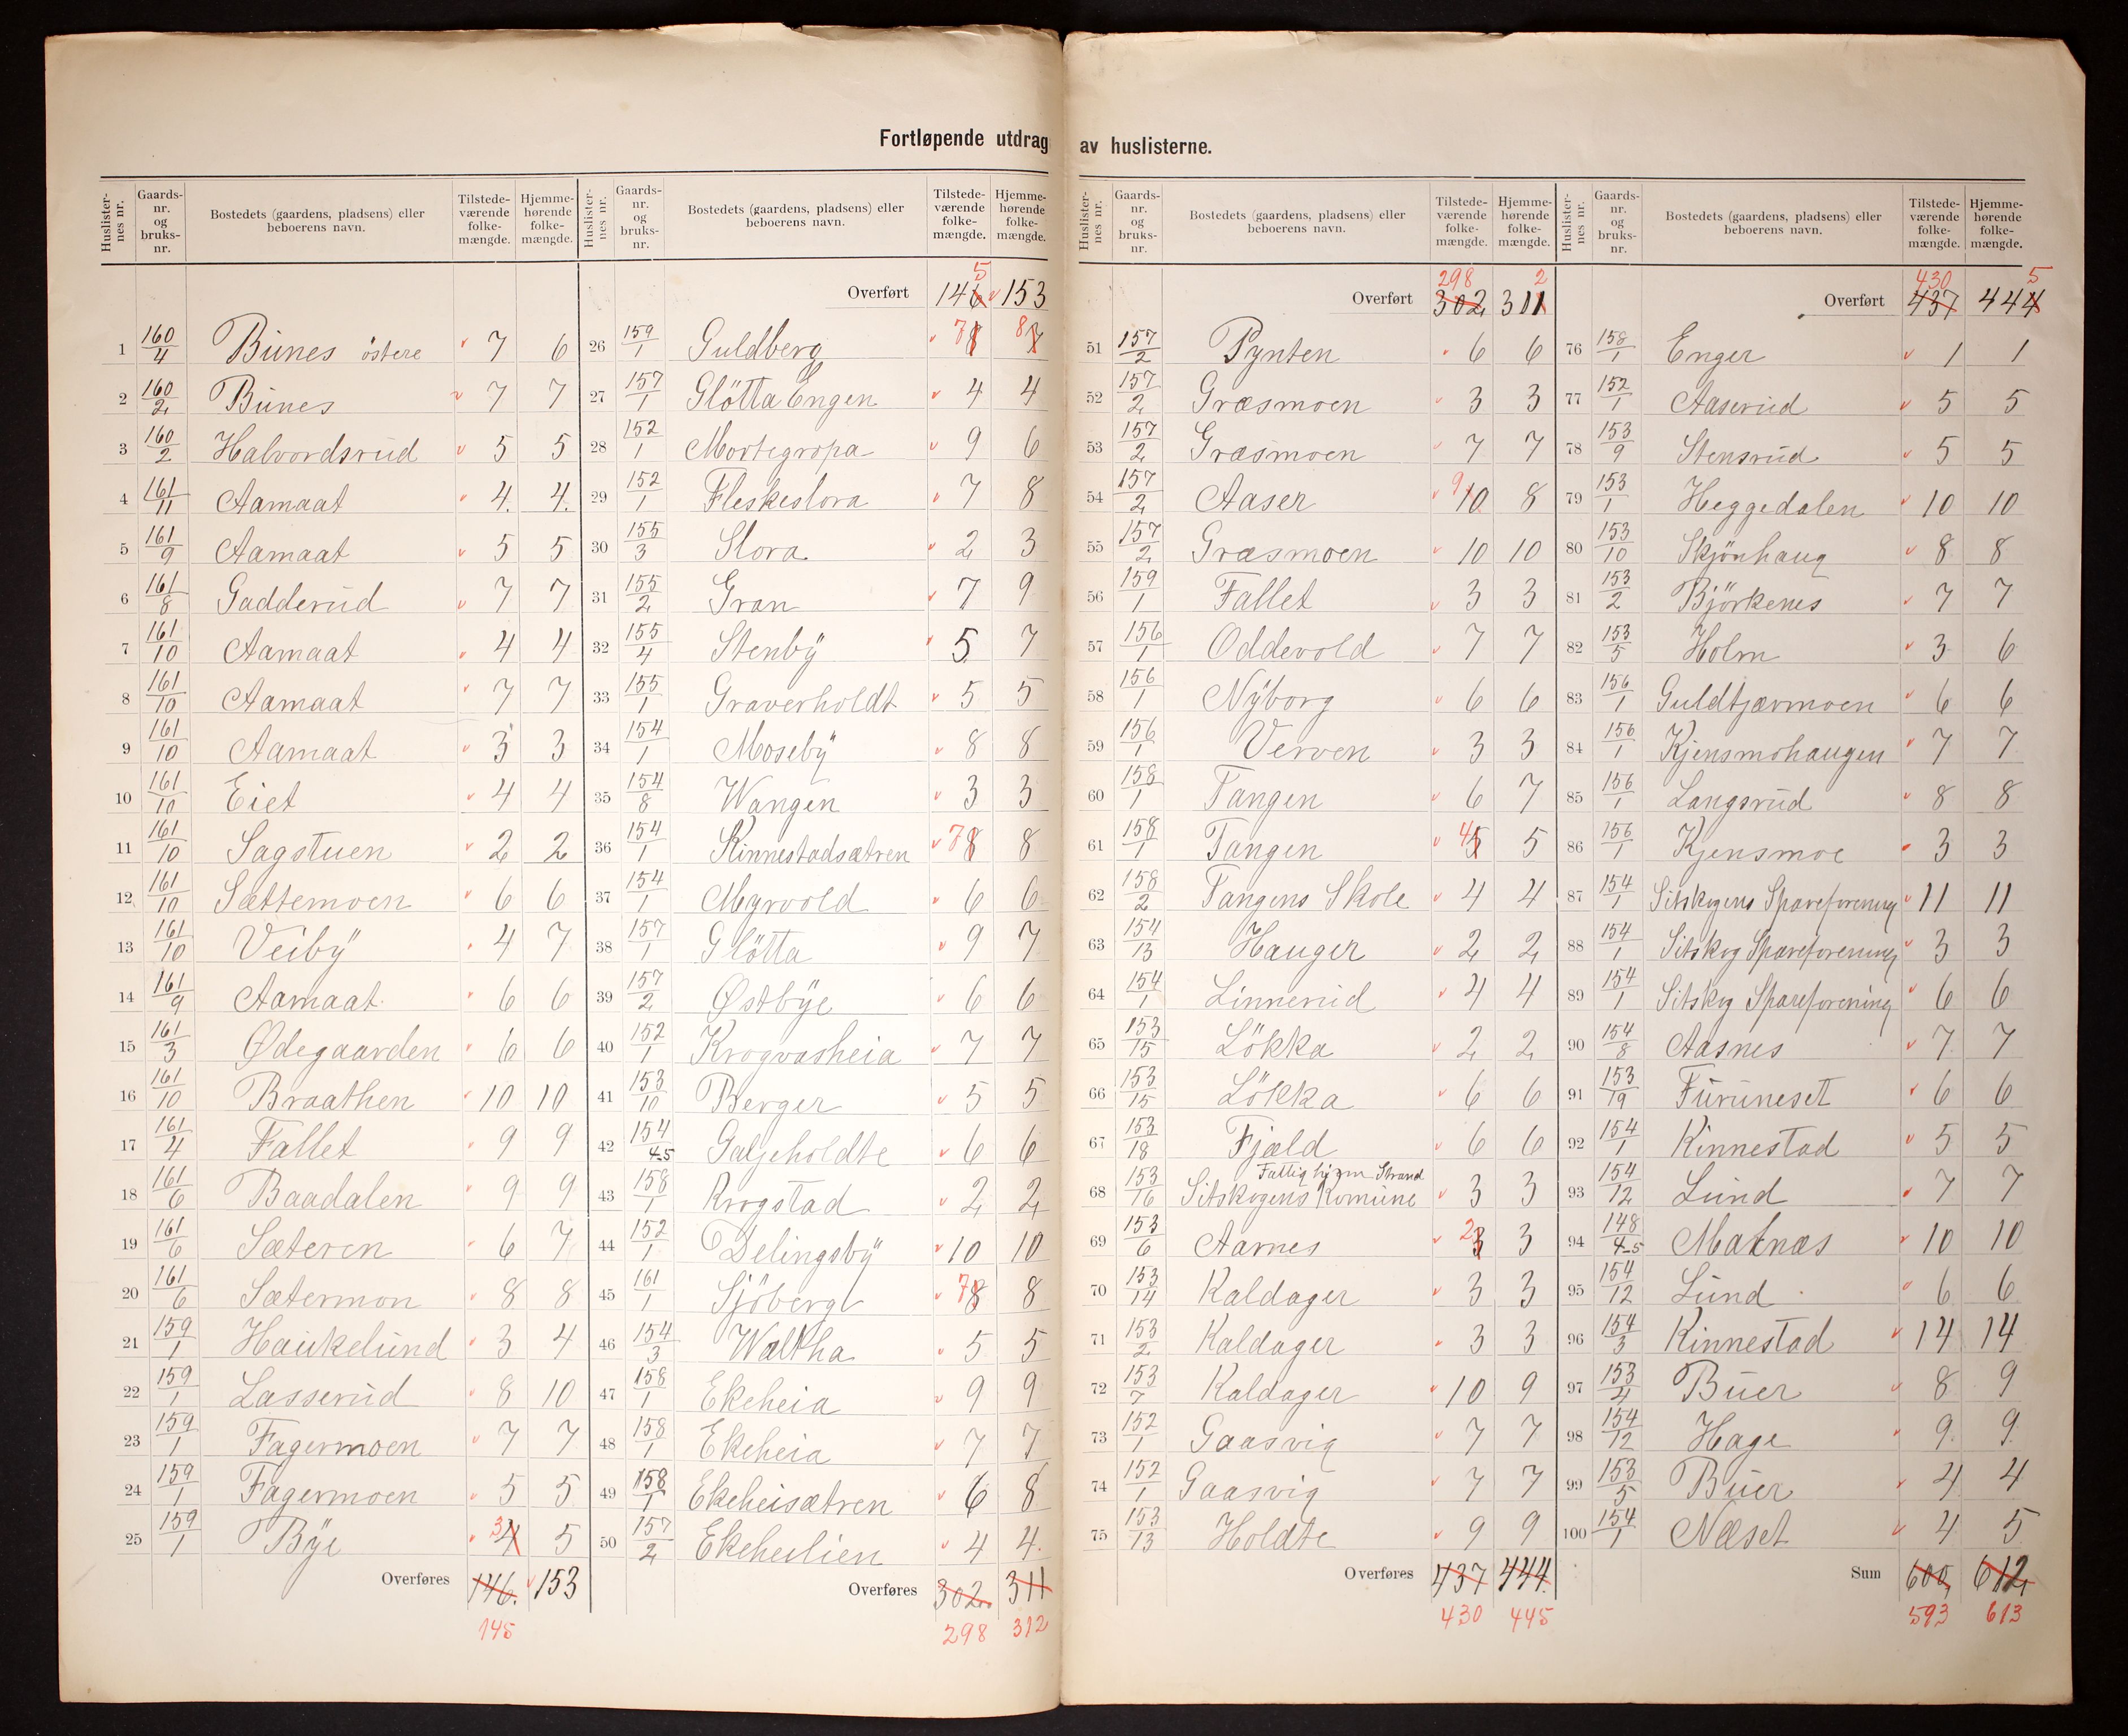 Fortløpende utdrag av huslisterne.
Huslister-nes nr. | Gaards-nr. og bruks-nr. | Bostedets (gaardens, pladsens) eller beboerens navn. | Tilstede-værende folke-mængde. | Hjemme-hørende folke-mængde.
1 160/4 Bünes östere 7 6
2 160/2 Bünes 7 7
3 160/2 Halvordsrüd 5 5
4 161/11 Aamaat 4. 4.
5 161/9 Aamaat 5 5
6 161/8 Gadderüd 7 7
7 161/10 Aamaat 4 4
8 161/10 Aamaat 7 7
9 161/10 Aamaat 3 3
10 161/10 Eiet 4 4
11 161/10 Sagstuen 2 2
12 161/10 Sættemoen 6 6
13 161/10 Veibÿ 4 7
14 161/9 Aamaat 6 6
15 161/3 Ødegaarden 6 6
16 161/10 Braathen 10 10
17 161/4 Fallet 9 9
18 161/6 Baadalen 9 9
19 161/6 Sæteren 6 7
20 161/6 Sætermon 8 8
21 159/1 Haukelünd 3 4
22 159/1 Lasserüd 8 10
23 159/1 Fagermoen 7 7
24 159/1 Fagermoen 5 5
25 159/1 Bÿe 3 4 5
Overføres 146. 153
145
Huslister-nes nr. | Gaards-nr. og bruks-nr. | Bostedets (gaardens, pladsens) eller beboerens navn. | Tilstede-værende folke-mængde. | Hjemme-hørende folke-mængde.
5
Overført 146 153
26 159/1 Guldberg 7 8 8 7
27 157/1 Glötta Engen 4 4
28 152/1 Mortegropa 9 6
29 152/1 Fleskeslora 7 8
30 155/3 Slora 2 3
31 155/2 Gran 7 9
32 155/4 Stenbÿ 5 7
33 155/1 Graverholdt 5 5
34 154/1 Mosebÿ 8 8
35 154/8 Wangen 3 3
36 154/1 Kinnestadsætren 7 8 8
37 154/1 Myrvold 6 6
38 157/1 Glötta 9 7
39 157/2 Østbÿe 6 6
40 152/1 Krogvasheia 7 7
41 153/10 Berger 5 5
42 154/4-5 Galjeholdte 6 6
43 158/1 Krogstad 2 2
44 152/1 Delingsbÿ 10 10
45 161/1 Sjöberg 7 8 8
46 154/3 Waltha 5 5
47 158/1 Ekeheia 9 9
48 158/1 Ekeheia 7 7
49 158/1 Ekeheisætren 6 8
50 157/2 Ekeheilien 4 4.
Overføres 302 311
298 312
Huslister-nes nr. | Gaards-nr. og bruks-nr. | Bostedets (gaardens, pladsens) eller beboerens navn. | Tilstede-værende folke-mængde. | Hjemme-hørende folke-mængde.
298 2
Overført 302 311
51 157/2 Pynten 6 6
52 157/2 Græsmoen 3 3
53 157/2 Græsmoen 7 7
54 157/2 Aaser 9 10 8
55 157/2 Græsmoen 10 10
56 159/1 Fallet 3 3
57 156/1 Oddevold 7 7
58 156/1 Nÿborg 6 6
59 156/1 Verven 3 3
60 158/1 Tangen 6 7
61 158/1 Tangen 4 5 5
62 158/2 Tangens Skole 4 4
63 154/13 Hauger 2 2
64 154/1 Linnerüd 4 4
65 153/15 Lökka 2 2
66 153/15 Lökka 6 6
67 153/18 Fjeld 6 6
Fattig hjem Strand
68 153/16 Sitskogens Komüne 3 3
69 153/6 Aarnes 2 3 3
70 153/14 Kaldager 3 3
71 153/2 Kaldager 3 3
72 153/7 Kaldager 10 9
73 152/1 Gaasvig 7 7
74 152/1 Gaasvig 7 7
75 153/13 Holdte 9 9
Overføres 437 444.
430 445
Huslister-nes nr. | Gaards-nr. og bruks-nr. | Bostedets (gaardens, pladsens) eller beboerens navn. | Tilstede-værende folke-mængde. | Hjemme-hørende folke-mængde.
430 5
Overført 437 444
76 158/1 Enger 1 1
77 152/1 Aaserüd 5 5
78 153/9 Stensrüd 5 5
79 153/1 Heggedalen 10 10
80 153/10 Skjönhaug 8 8
81 153/2 Björkenes 7 7
82 153/5 Holm 3 6
83 156/1 Guldtjærmoen 6 6
84 156/1 Kjensmohaugen 7 7
85 156/1 Langsrüd 8 8
86 156/1 Kjensmoe 3 3
87 154/1 Sitskogens Spareforening 11 11
88 154/1 Sitskog Spareforening 3 3
89 154/1 Sitskog Spareforening 6 6
90 154/8 Aasnes 7 7
91 153/19 Fürüneset 6 6
92 154/1 Kinnestad 5 5
93 154/12 Lünd 7 7
94 148/4-5 Matnæs 10 10
95 154/12 Lünd 6 6
96 154/3 Kinnestad 14 14
97 153/4 Büer 8 9
98 154/12 Hage 9. 9.
99 153/5 Büer 4 4
100 154/1 Næset 4 5
Sum 600 612
593 613